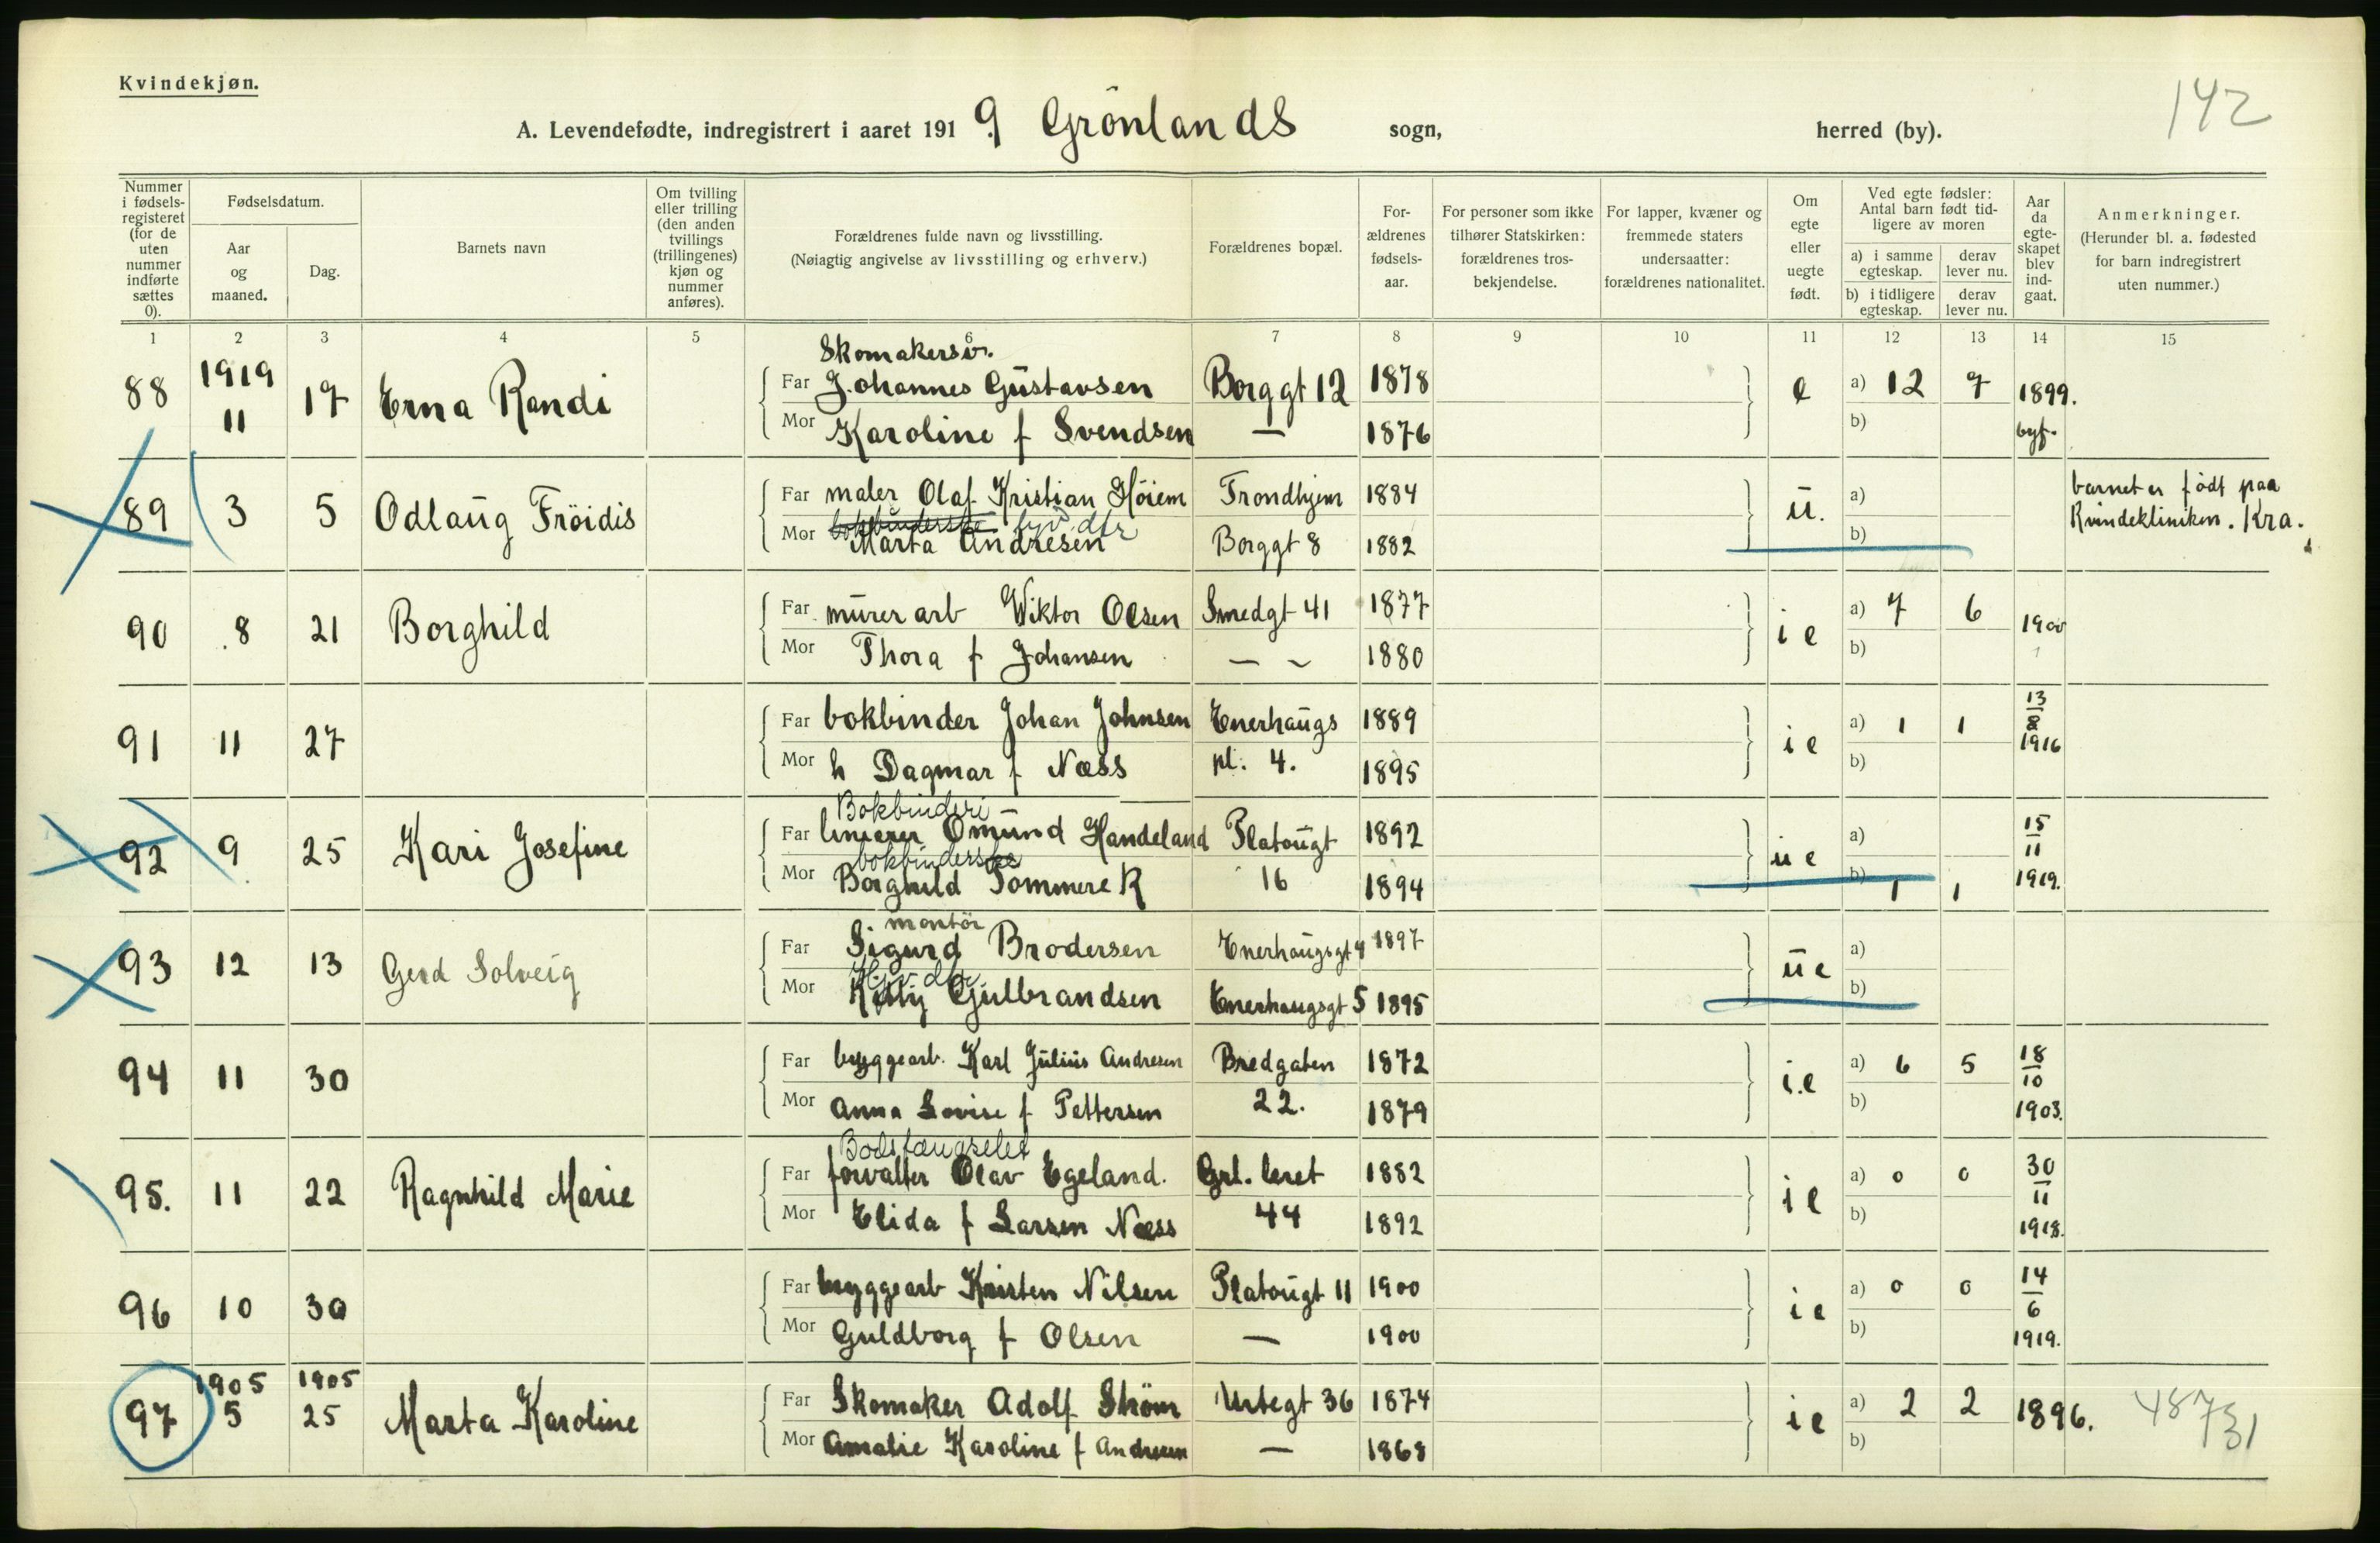 Kvindekjøn.
142
A. Levendefødte, indregistrert i aaret 1919 Grönlands sogn, herred (by).
Nummer i fødsels-registeret (for de uten nummer indførte sættes 0).
Fødselsdatum.
Aar og maaned.
Dag.
Barnets navn
Om tvilling eller trilling (den anden tvillings (trillingenes) kjøn og nummer anføres).
Forældrenes fulde navn og livsstilling.
(Nøiagtig angivelse av livsstilling og erhverv.)
Forældrenes bopæl.
For-ældrenes fødsels-aar.
For personer som ikke tilhører Statskirken: forældrenes tros-bekjendelse.
For lapper, kvæner og fremmede staters undersaatter: forældrenes nationalitet.
Om egte eller uegte født.
Ved egte fødsler: Antal barn født tid-ligere av moren
a) i samme egteskap.
derav lever nu.
b) i tidligere egteskap.
derav lever nu.
Aar da egte-skapet blev ind-gaat.
Anmerkninger.
(Herunder bl. a. fødested for barn indregistrert uten nummer.)
1 2 3 4 5 6 7 8 9 10 11 12 13 14 15
Skomakersv.
88 1919 11 17 Erna Randi Far Johannes Gustavsen Borggt 12 1878 e a) 12 7 1899.
Mor Karoline f Svendsen — 1876 b) byf.
89 3 5 Odlaug Fröidis Far maler Olaf Kristian Höiem Trondhjem 1884 u. a) barnet er födt paa
bokbinderske
Mor Marta Andresen Borggt 8 1882 b) Kvindekliniken. Kra.
90 8 21 Borghild Far murerarb Wiktor Olsen Smedgt 41 1877 i e a) 7 6 1900
Mor Thora f Johansen — — 1880 b)
91 11 27 Far bokbinder Johan Johnsen Enerhaugs 1889 i e a) 1 1 13/8 1916
Mor h Dagmar f Næss pl. 4. 1895 b)
Bokbinderi
92 9 25 Kari Josefine Far linierer Omund Handeland Platougt 1892 u e a) 15/11
bokbinderske
Mor Borghild Tommere R 16 1894 b) 1 1 1919.
montör
93 12 13 Gerd Solveig Far Sigurd Brodersen Enerhaugsgt 4 1897 u e a)
Mor Kitty Gulbrandsen Enerhaugsgt 5 1895 b)
94 11 30 Far byggearb. Karl Julius Andresen Bredgaten 1872 i.e a) 6 5 18/10
Mor Anna Lovise f Pettersen 22. 1879 b) 1903.
Bodsfængselet
95. 11 22 Ragnhild Marie Far forvalter Olav Egeland. Grl. leret 1882 i e a) 0 0 30/11
Mor Elida f Larsen Næss 44 1892 b) 1918.
96 10 30 Far byggearb Kristen Nilsen Platougt 11 1900 i e a) 0 0 14/6
Mor Guldborg f Olsen — 1900 b) 1919.
97 1905 5 1905 25 Marta Karoline Far Skomaker Adolf Ström Urtegt 36 1874 i e a) 2 2 1896. 48731
Mor Amalie Karoline f Andresen — 1868 b)